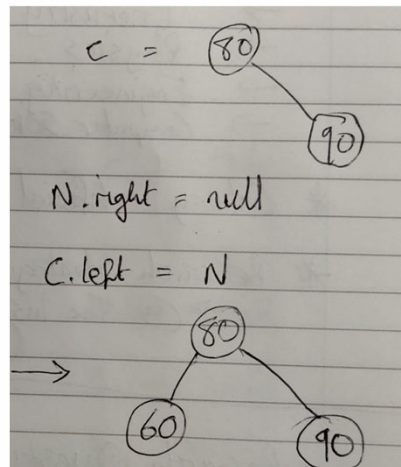 C = 80
90
N.right = null
C.left = N
80
→
60 90